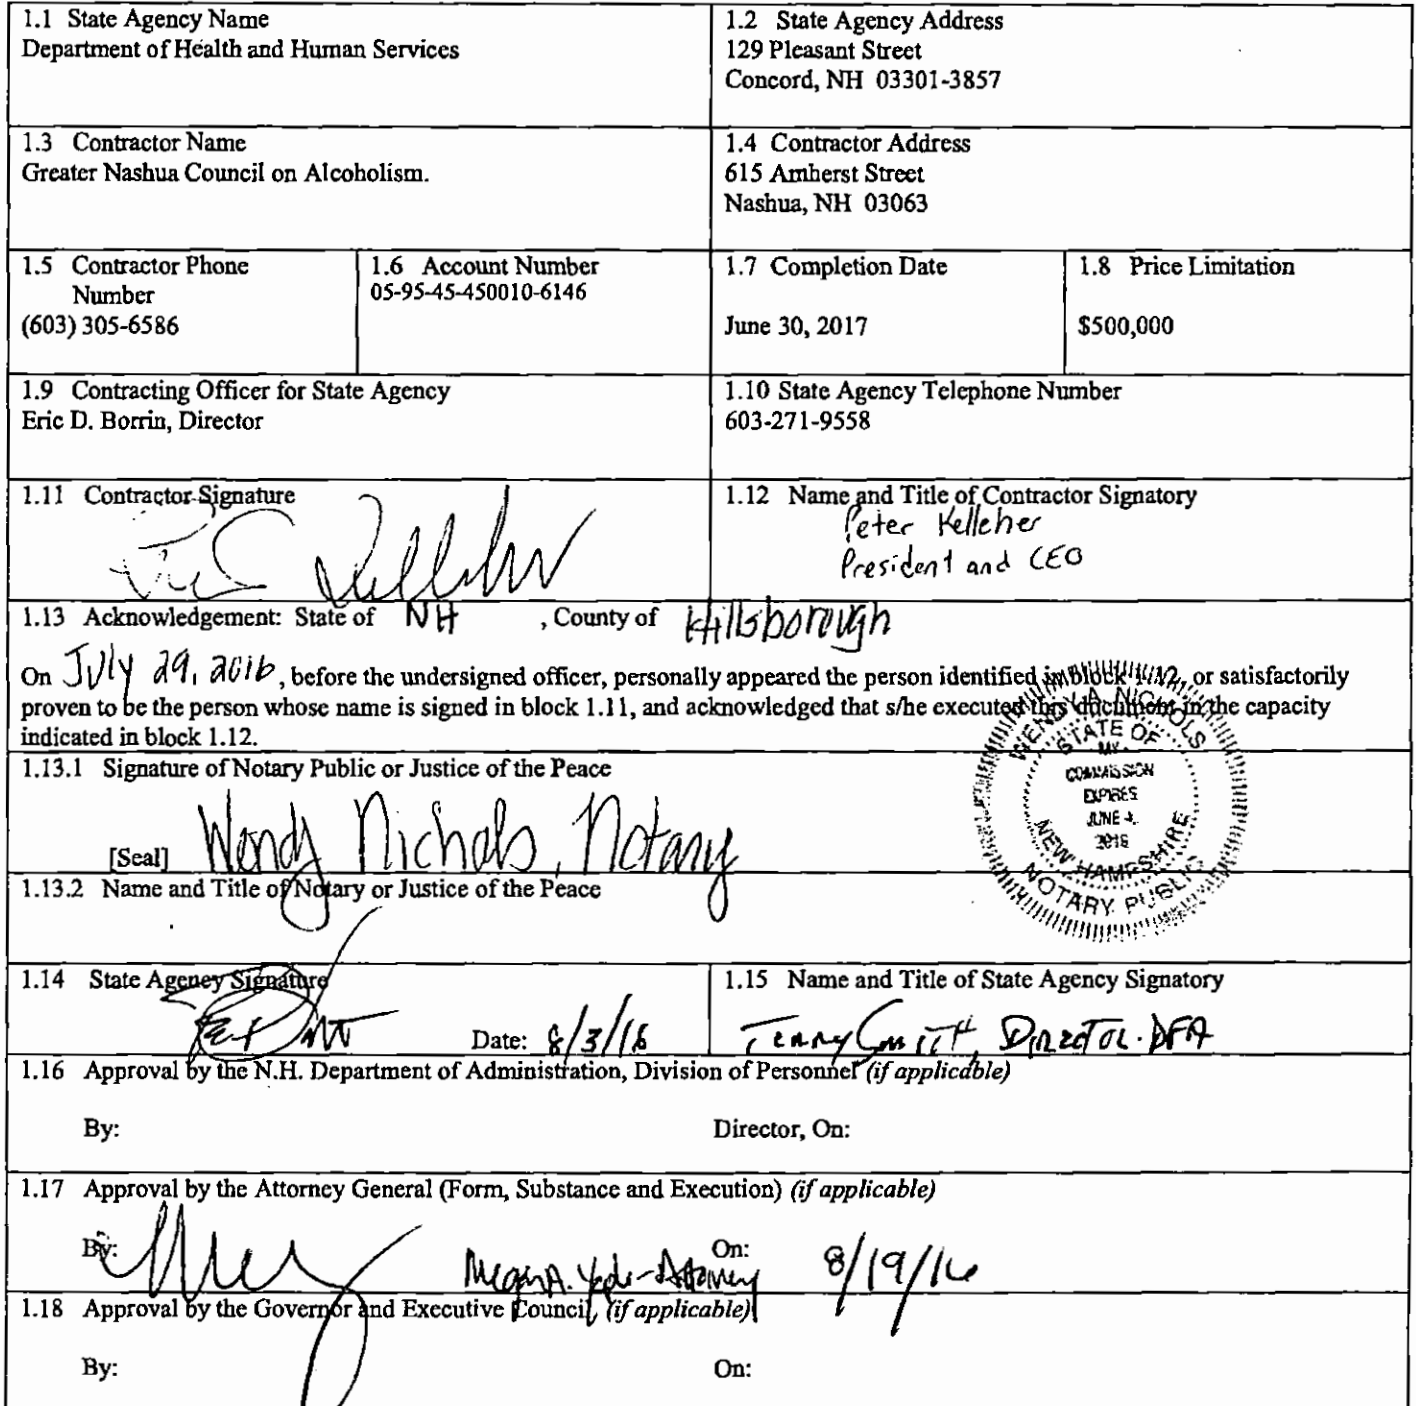 1.1 State Agency Name
Department of Health and Human Services
1.2 State Agency Address
129 Pleasant Street
Concord, NH 03301-3857
1.3 Contractor Name
Greater Nashua Council on Alcoholism.
1.4 Contractor Address
615 Amherst Street
Nashua, NH 03063
1.5 Contractor Phone
Number
(603) 305-6586
1.6 Account Number
05-95-45-450010-6146
1.7 Completion Date
June 30, 2017
1.8 Price Limitation
$500,000
1.9 Contracting Officer for State Agency
Eric D. Borrin, Director
1.10 State Agency Telephone Number
603-271-9558
1.11 Contractor Signature
1.12 Name and Title of Contractor Signatory
Peter Kelleher
President and CEO
1.13 Acknowledgement: State of NH , County of Hillsborough
On July 29, 2016, before the undersigned officer, personally appeared the person identified in block 1.12, or satisfactorily
proven to be the person whose name is signed in block 1.11, and acknowledged that s/he executed this document in the capacity
indicated in block 1.12.
WENDY A. NICHOLS
STATE OF
MY
COMMISSION
EXPIRES
JUNE 4,
NEW HAMPSHIRE
NOTARY PUBLIC
1.13.1 Signature of Notary Public or Justice of the Peace
[Seal] Wendy Nichols, Notary
1.13.2 Name and Title of Notary or Justice of the Peace
1.14 State Agency Signature
Date: 8/3/16
1.15 Name and Title of State Agency Signatory
Terry Smith, Director-DFA
1.16 Approval by the N.H. Department of Administration, Division of Personnel (if applicable)
By: Director, On:
1.17 Approval by the Attorney General (Form, Substance and Execution) (if applicable)
By: Megan A. - Attorney On: 8/19/16
1.18 Approval by the Governor and Executive Council (if applicable)
By: On: